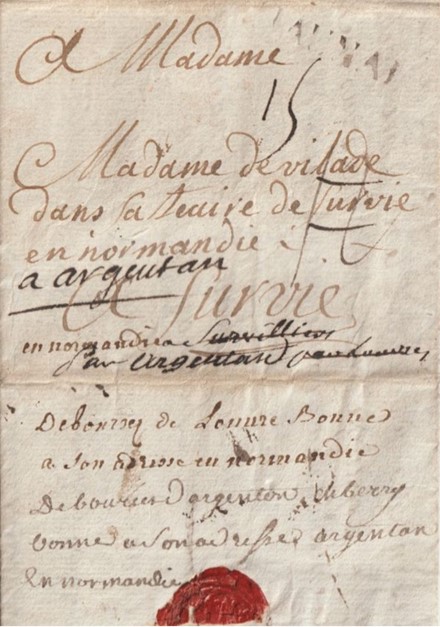 A Madame
15
Madame de vilade
dans sa teaire de Survie
en normandie
a argentan
A Survie
en normandie a Survilliers
par Argentan
Deboursé de Louvre Bonne
a son adresse en normandie
Deboursé d argenton en berry
bonne a son adresse argentan
En normandie